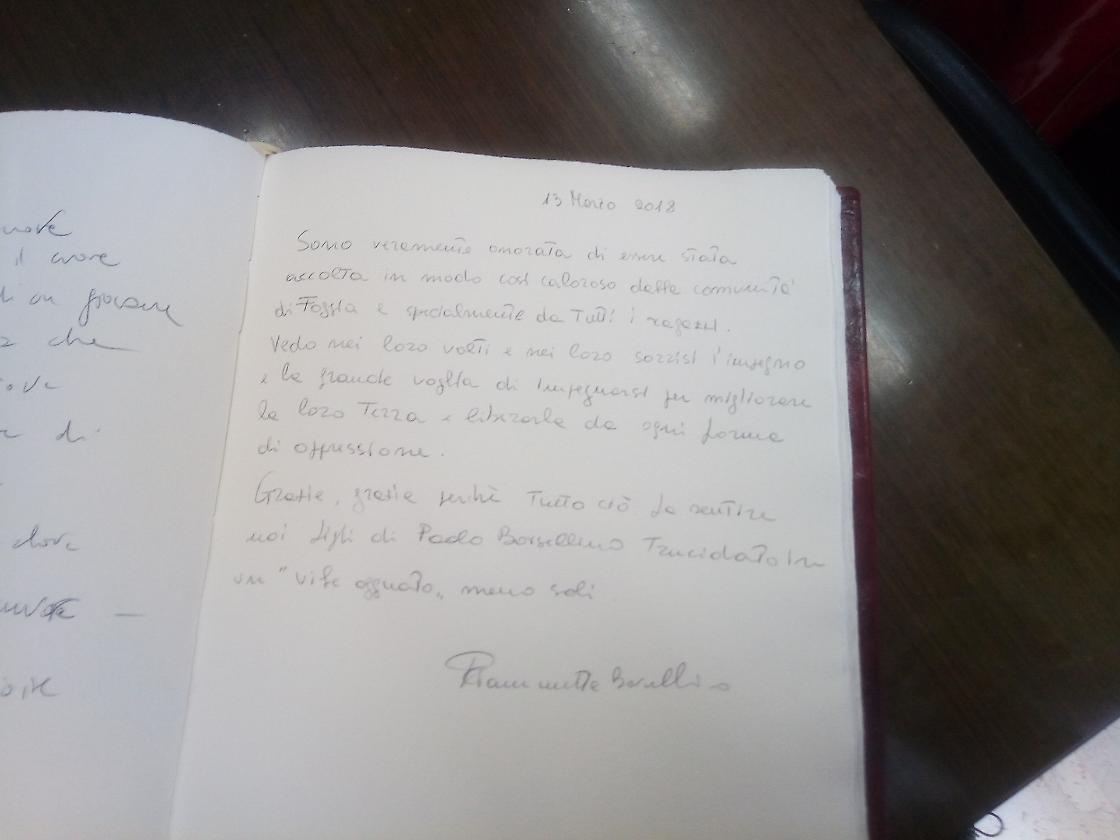 nove
il cuore
di un giovane
che
di
dove
13 Marzo 2018
Sono veramente onorata di essere stata
accolta in modo così caloroso dalla comunità
di Foggia e specialmente da Tutti i ragazzi.
Vedo nei loro volti e nei loro sorrisi l'impegno
e la grande voglia di impegnarsi per migliorare
la loro Terra e liberarla da ogni forma
di oppressione.
Grazie, grazie perchè Tutto ciò fa sentire
noi figli di Paolo Borsellino Trucidato in
un "vile agguato„ meno soli
Fiammetta Borsellino